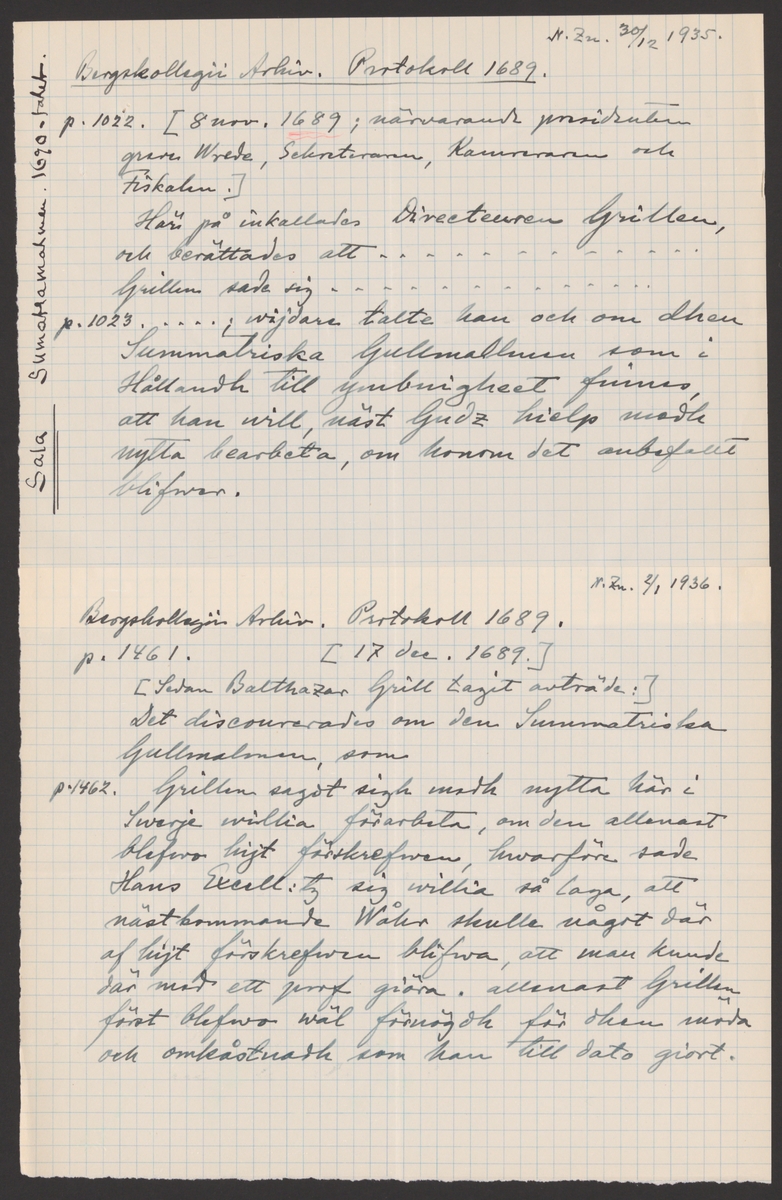 N. Zn. 30/12 1935.
Sala Sumatramalmen. 1690-talet.
Bergskollegii Arkiv. Protokoll 1689.
p. 1022. [ 8 nov. 1689 ; närvarande presidenten
greve Wrede, Sekreteraren, Kamreraren och
Fiskalen.]
Här på inkallades Directeuren Grillen,
och berättades att - - - - - - - - - - - -
Grillen sade sig - - - - - - - - - - - - -
p. 1023. . . . . ; wijdare talte han och om dhen
Summatriska Gullmallmen som i
Hållandh till ymbnigheet finnes,
att han will, näst Gudz hielp medh
nytta bearbeta, om honom det anbefallt
blifwer.
N. Zn. 2/1 1936.
Bergskollegii Arkiv. Protokoll 1689.
p. 1461. [ 17 dec. 1689.]
[ Sedan Balthazar Grill tagit avträde:]
Det discourerades om den Summatriska
Gullmalmen, som
p. 1462. Grillen sagdt sigh medh nytta här i
Swerje willia förarbeta, om den allenast
blefwo hijt förskrefwen, hwarföre sade
Hans Excell:tz sig willia så laga, att
nästkommande Wåhr skulle något där
af hijt förskrefwen blifwa, att man kunde
där med ett prof giöra. allenast Grillen
först blefwo wäl förnögdh för dhen möda
och omkåstnadh som han till dato giort.